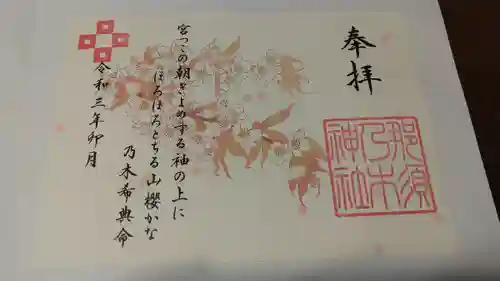 奉拝
那須乃木神社
宮つこの朝きよめする袖の上に
ほろほろとちる山櫻かな
乃木希典命
令和三年卯月